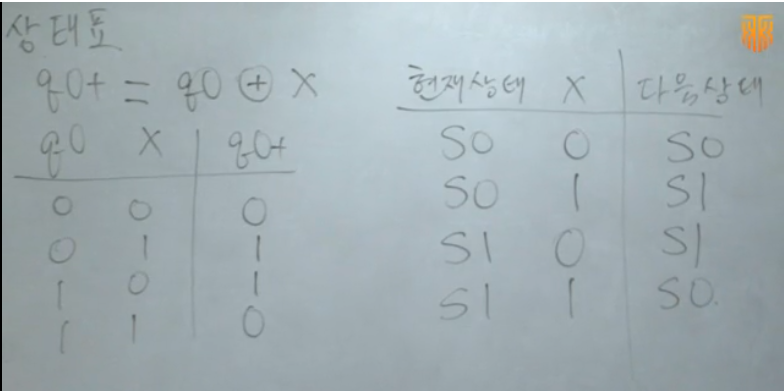 상태표
q0+ = q0 ⊕ X
q0 X q0+
0 0 0
0 1 1
1 0 1
1 1 0
현재상태 X 다음상태
S0 0 S0
S0 1 S1
S1 0 S1
S1 1 S0.